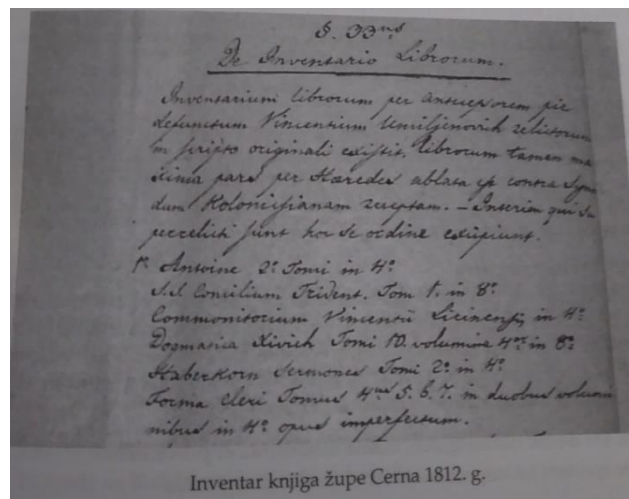 §. 33us
De Inventario Librorum.
Inventarium librorum per antecessorem pie
defunctum Vincentium Umiljenovich relictorum
in scripto originali existit, librorum tamen ma
xima pars per Hæredes ablata est contra Syno
dum Kolonichianam receptam. – Interim qui su
perrelicti sunt hoc se ordine excipiunt.
1o Antoine 2o Tomi in 4o
S.S. Concilium Trident. Tom 1. in 8o
Commonitorium Vincentii Licinensis in 4o
Dogmatica Tomi 10. volumina 4or in 8o
Haberkorn Sermones Tomi 2o in 4o
Forma Cleri Tomus 4us 5. 6. 7. in duobus volumi
nibus in 4o opus imperfectum.
Inventar knjiga župe Cerna 1812. g.